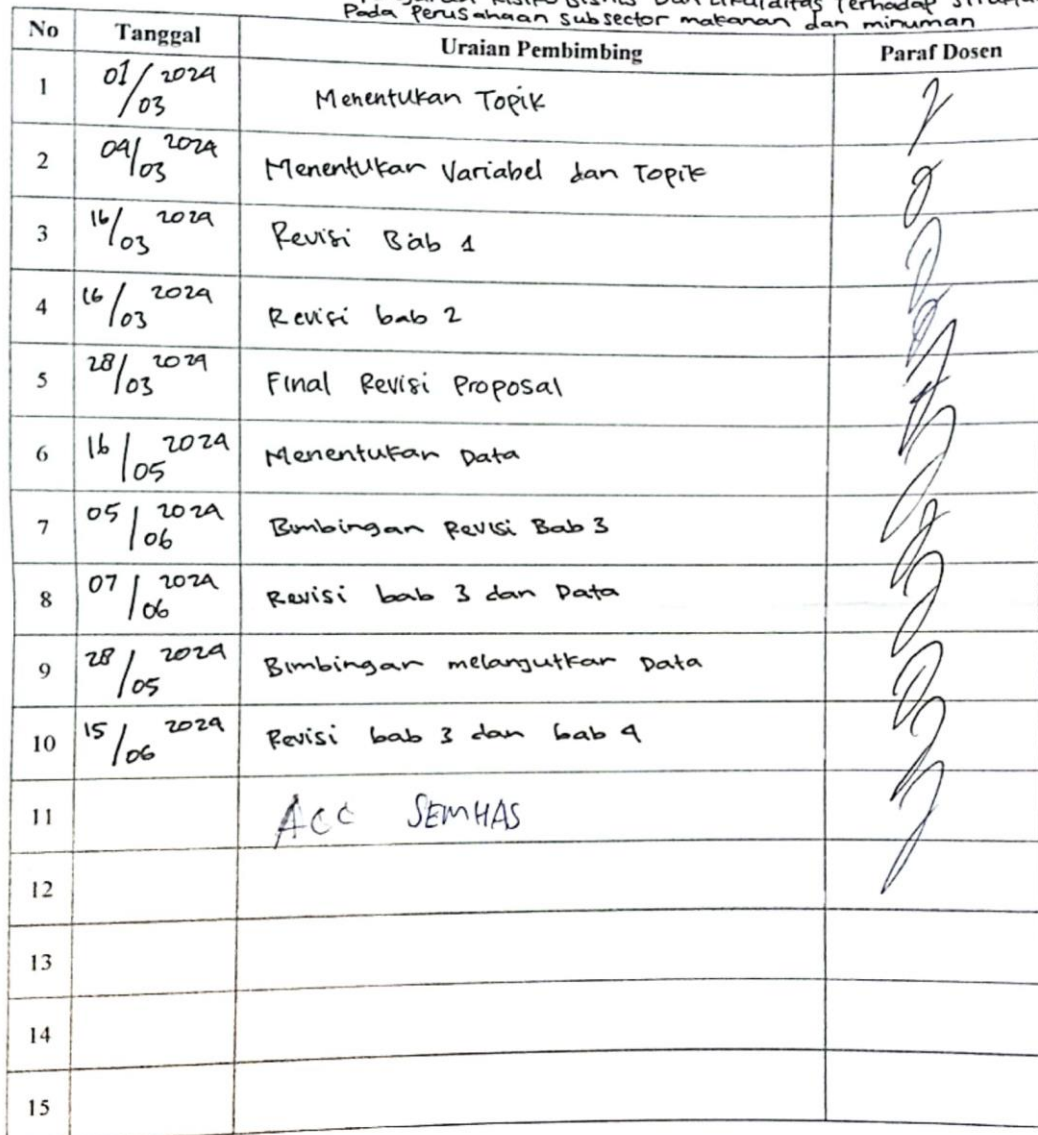 Risiko Bisnis Dan Likuiditas Terhadap
Pada Perusahaan subsector makanan dan minuman
No Tanggal Uraian Pembimbing Paraf Dosen
1 01/03 2024 Menentukan Topik
2 04/03 2024 Menentukan Variabel dan Topik
3 16/03 2024 Revisi Bab 1
4 16/03 2024 Revisi bab 2
5 28/03 2024 Final Revisi Proposal
6 16/05 2024 Menentukan Data
7 05/06 2024 Bimbingan Revisi Bab 3
8 07/06 2024 Revisi bab 3 dan Data
9 28/05 2024 Bimbingan melanjutkan Data
10 15/06 2024 Revisi bab 3 dan bab 4
11 ACC SEMHAS
12
13
14
15